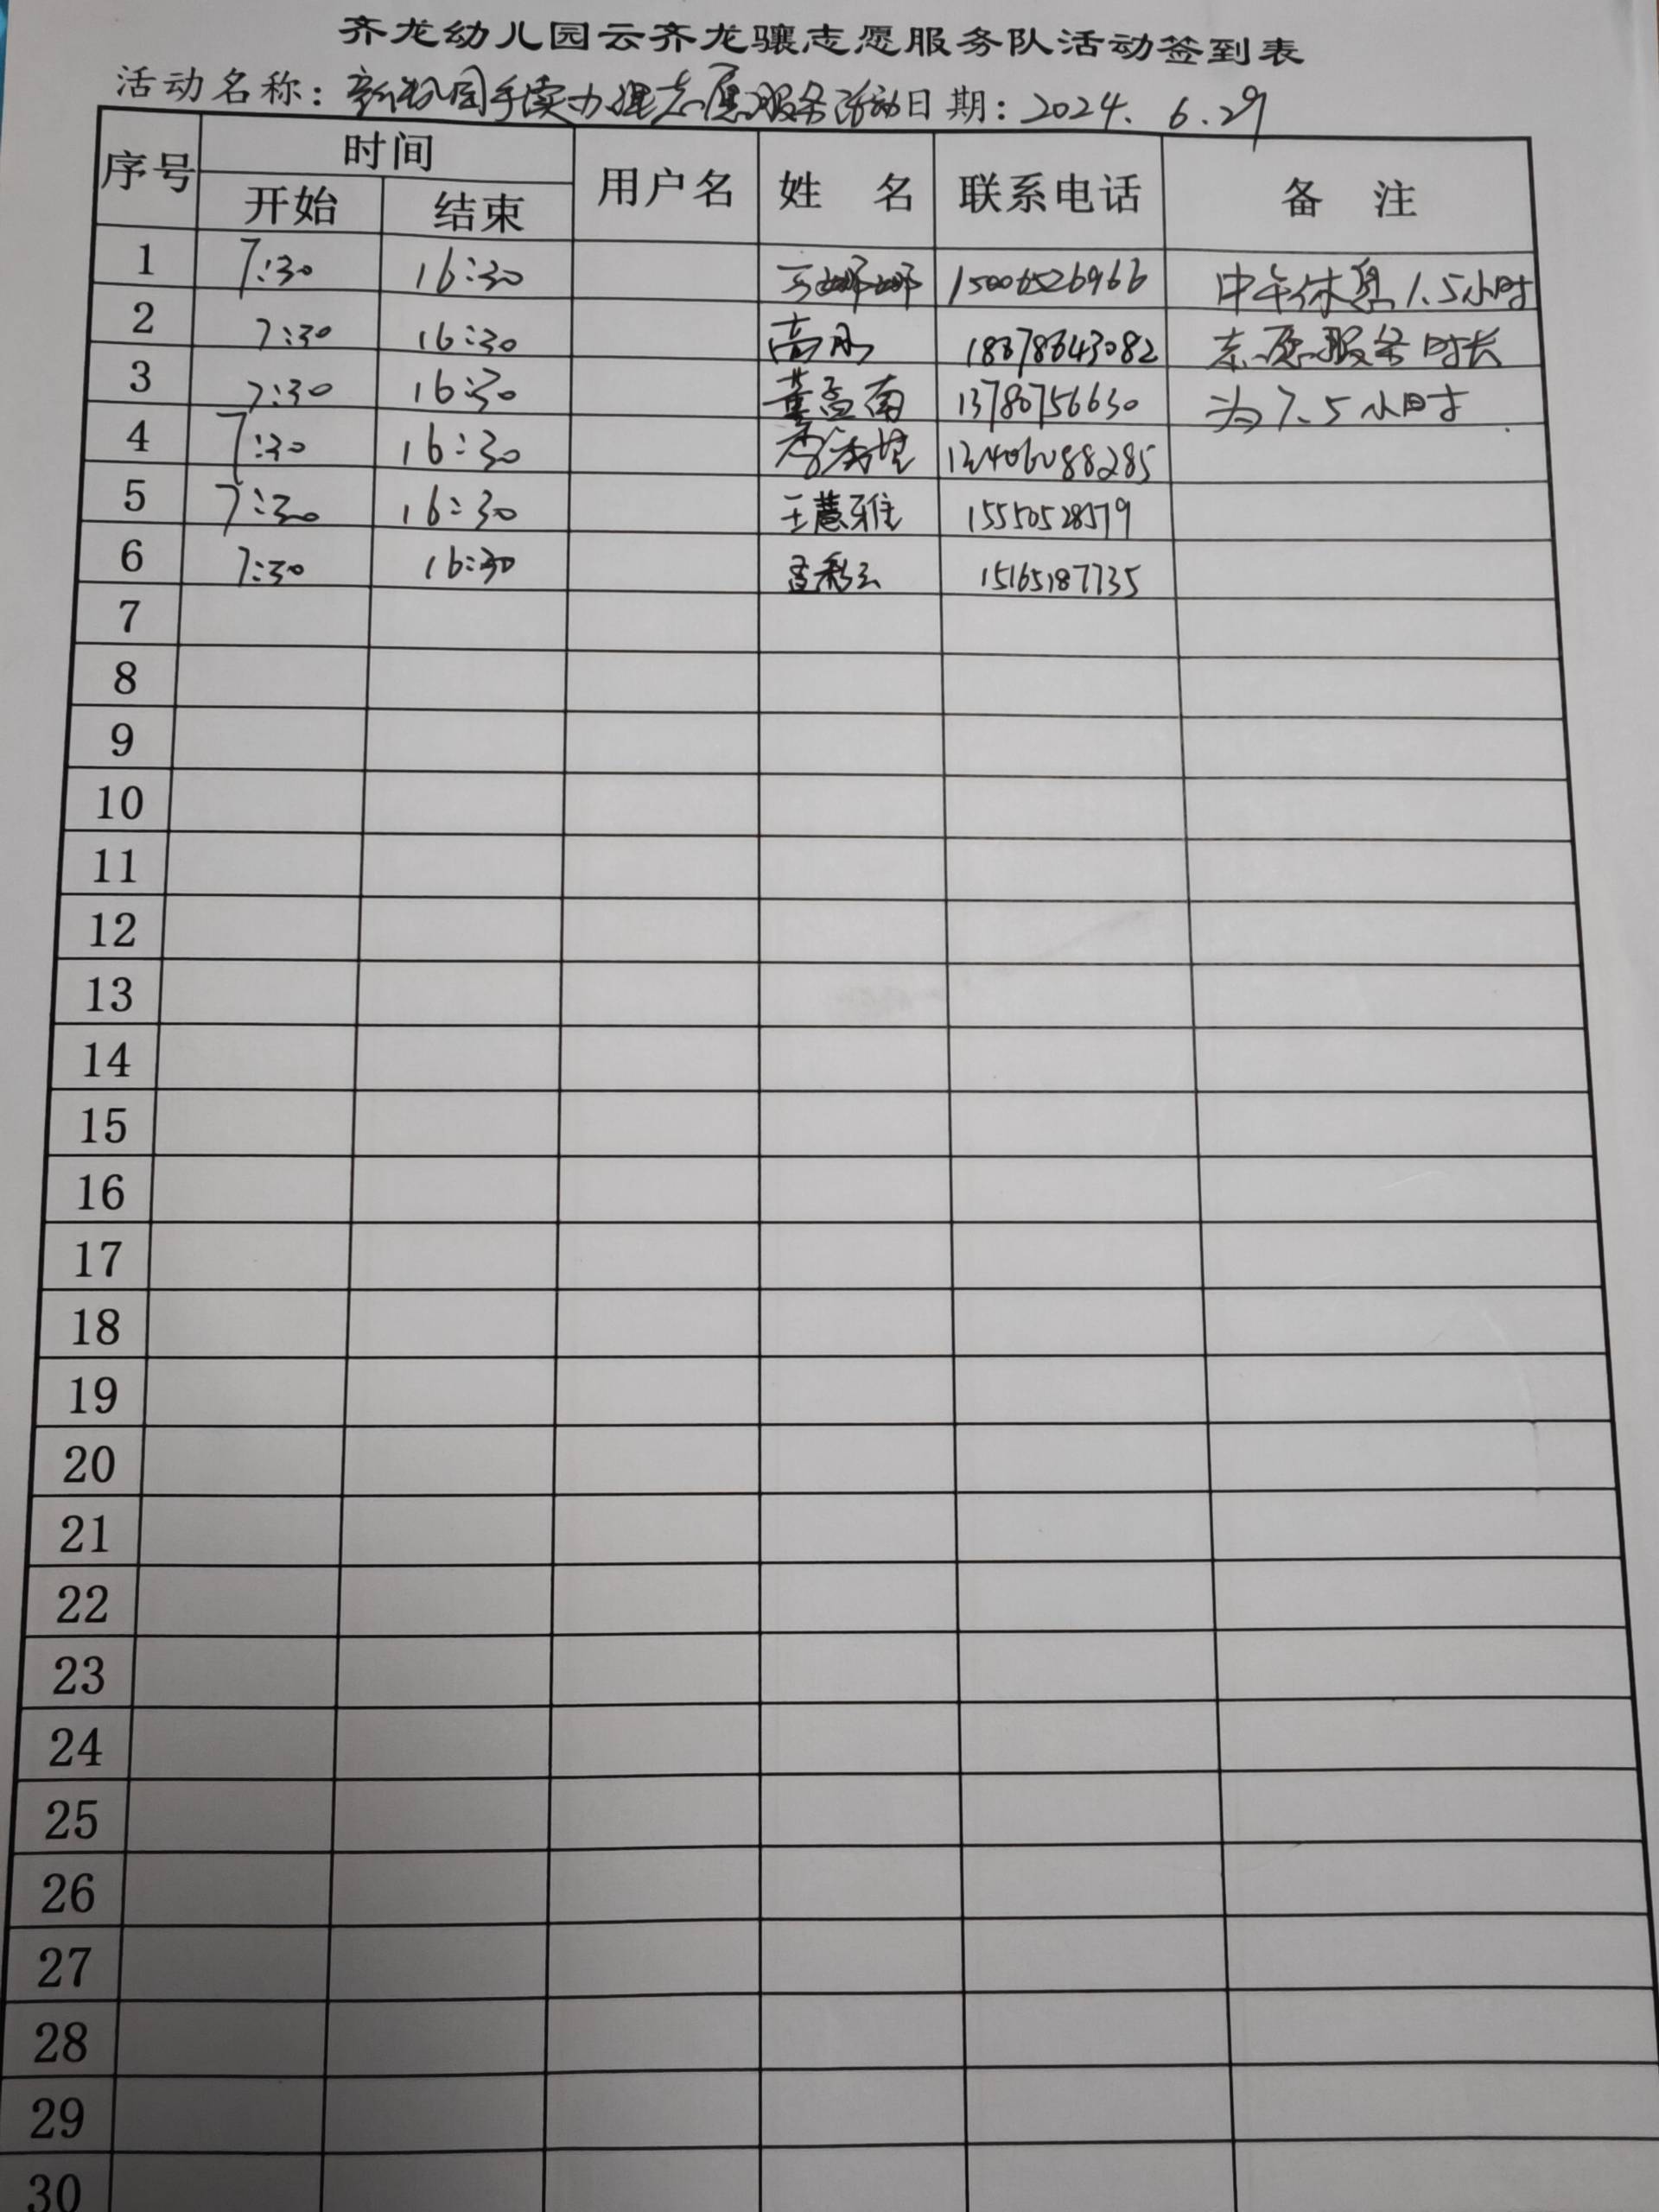 齐龙幼儿园云齐龙骧志愿服务队活动签到表
活动名称：新幼园手续办理志愿服务活动日期：2024.6.29
序号 时间 用户名 姓 名 联系电话 备 注
开始 结束
1 7:30 16:30 娜娜 15006526966 中午休息1.5小时
2 7:30 16:30 高 18678643082 志愿服务时长
3 7:30 16:30 董孟南 13780756630 为7.5小时.
4 7:30 16:30 李
5 7:30 16:30 王慧雅 15550528579
6 7:30 16:30 孟彩云 15165187735
7
8
9
10
11
12
13
14
15
16
17
18
19
20
21
22
23
24
25
26
27
28
29
30